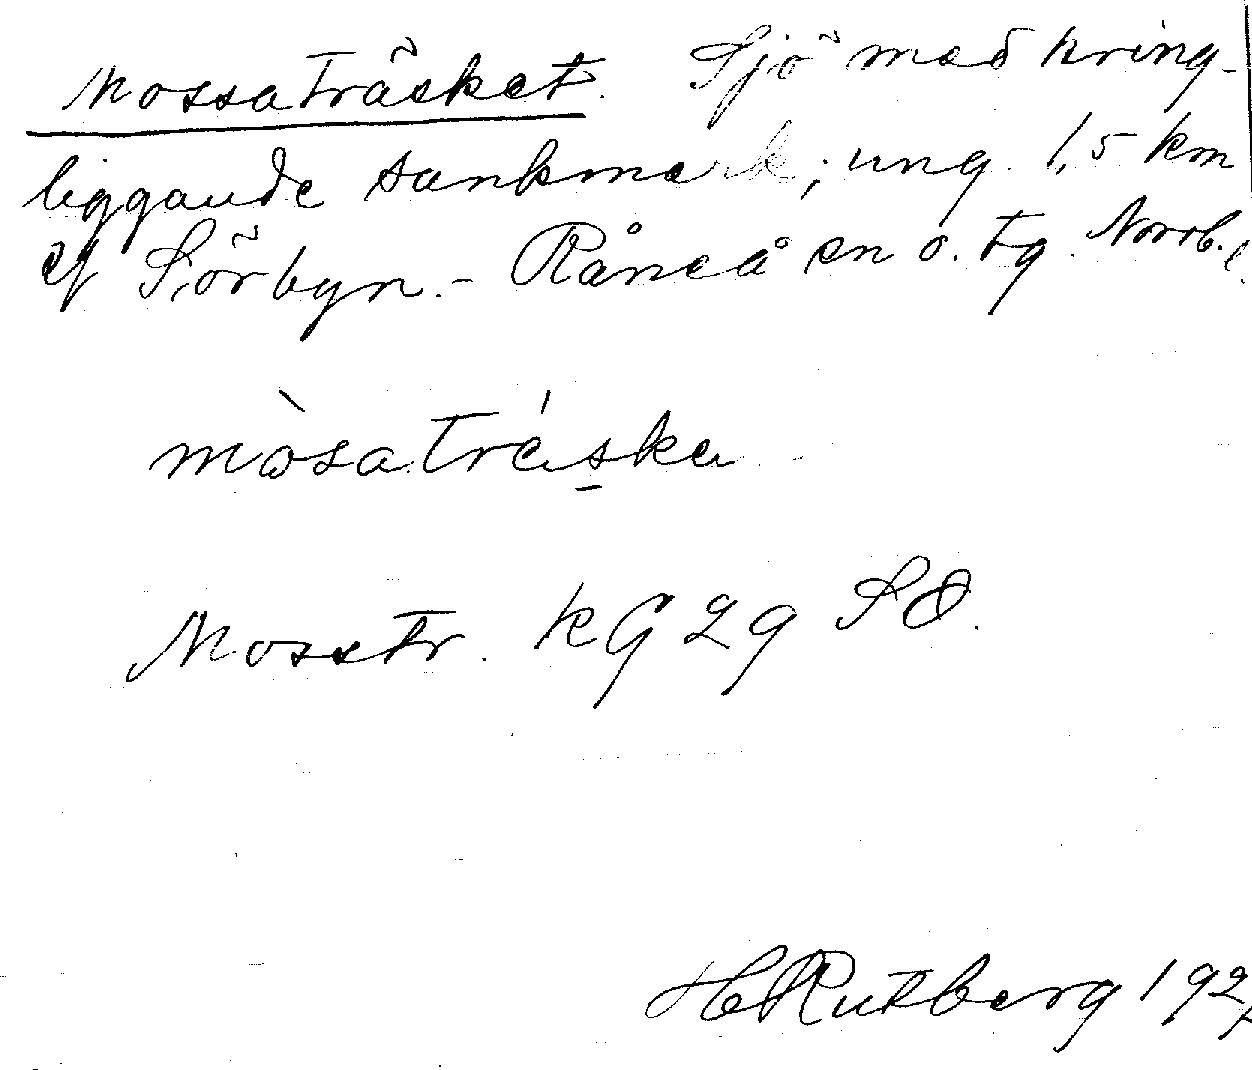 Mossaträsket. Sjö med kring-
liggande sankmark; ung. 1,5 km
af Sörbyn. - Råneå sn o. tg. Norrb. l.
mòsatráska
Mosstr. KG 29 SO.
H Rutberg 192